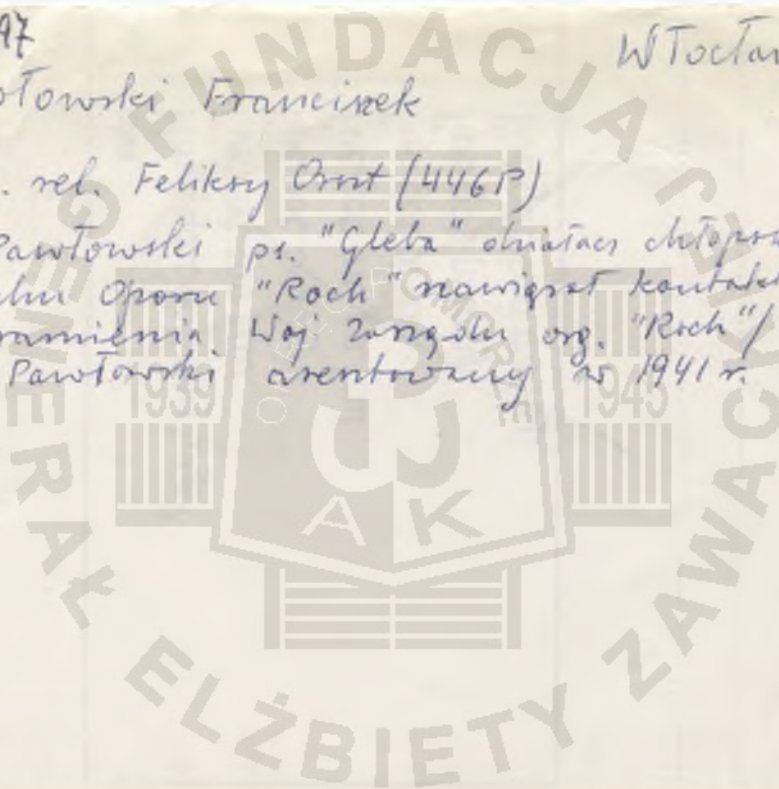 97
Włocław
ołowski Franciszek
. rel. Feliksy Orst (446P)
Pawłowski ps. "Gleba" działacz chłopsk
chu Oporu "Roch" nawiązał kontakt
ramienia Woj. Zarządu org. "Roch"/
Pawłowski aresztowany w 1941 r.
FUNDACJA GENERAŁ ELŻBIETY ZAWACKIEJ
POMORZE
1939 1945
AK